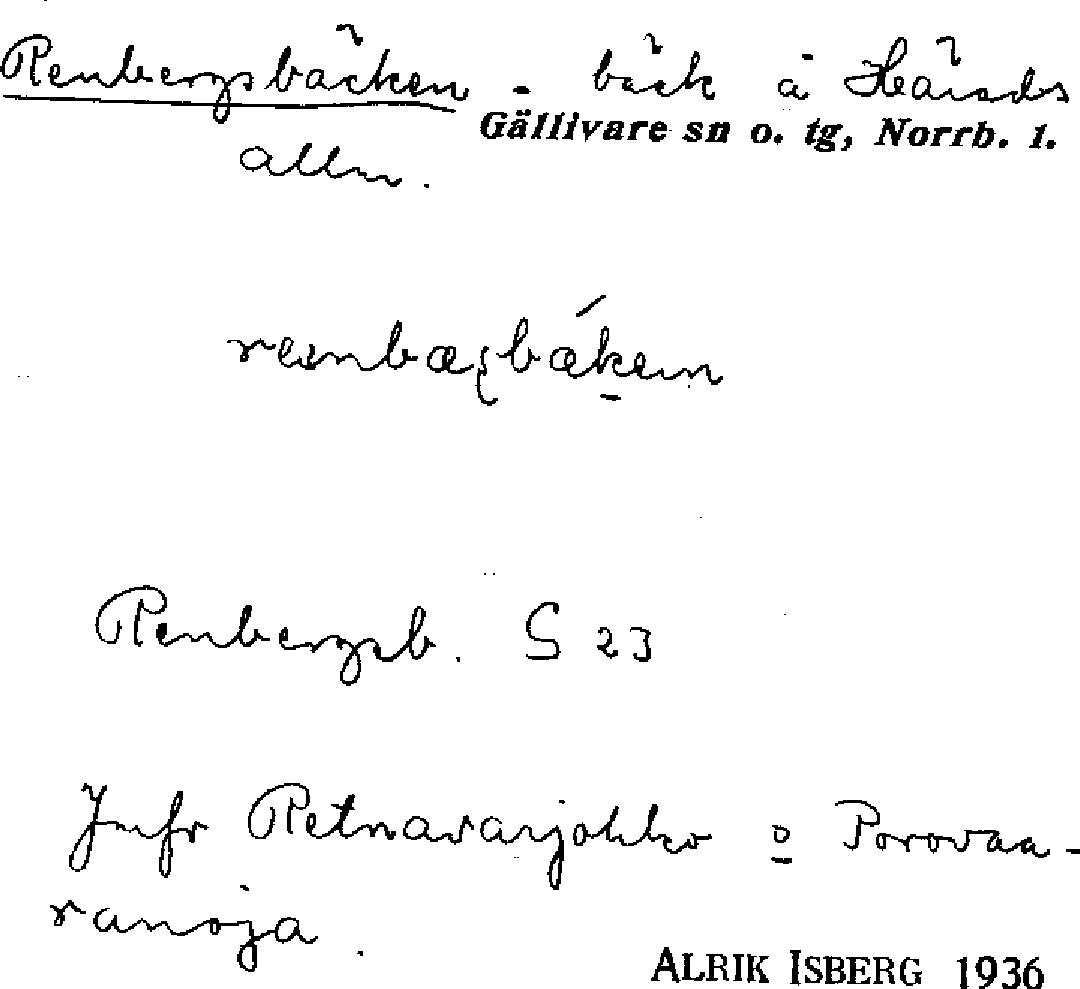 Renbergsbäcken - bäck å Härads
Gällivare sn o. tg, Norrb. l.
allm.
Renbergsb. S 23
Jmfr Retnavarjohko o Porovaa-
ranoja.
ALRIK ISBERG 1936